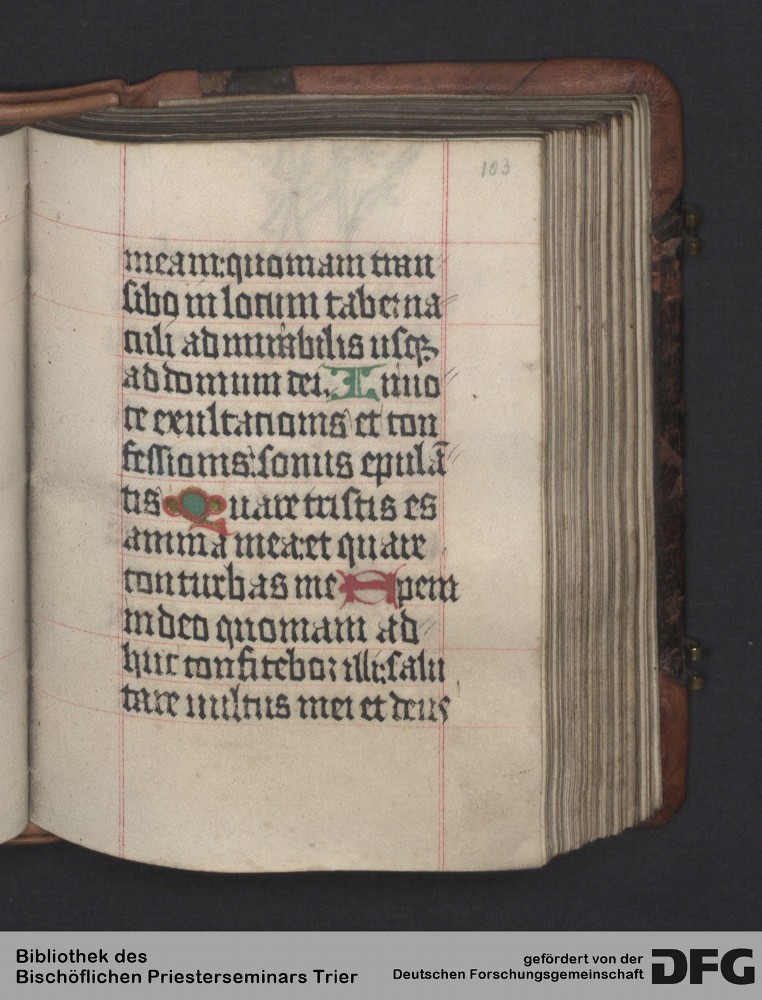 103
meam: quoniam tran
sibo in locum taberna
culi admirabilis usq;
ad domum dei. In uo
ce exultationis et con
fessionis: sonus epulā
tis Quare tristis es
anima mea: et quare
conturbas me Spera
in deo quoniam ad
huc confitebor illi: salu
tare uultus mei et deus
Bibliothek des
Bischöflichen Priesterseminars Trier
gefördert von der
Deutschen Forschungsgemeinschaft
DFG